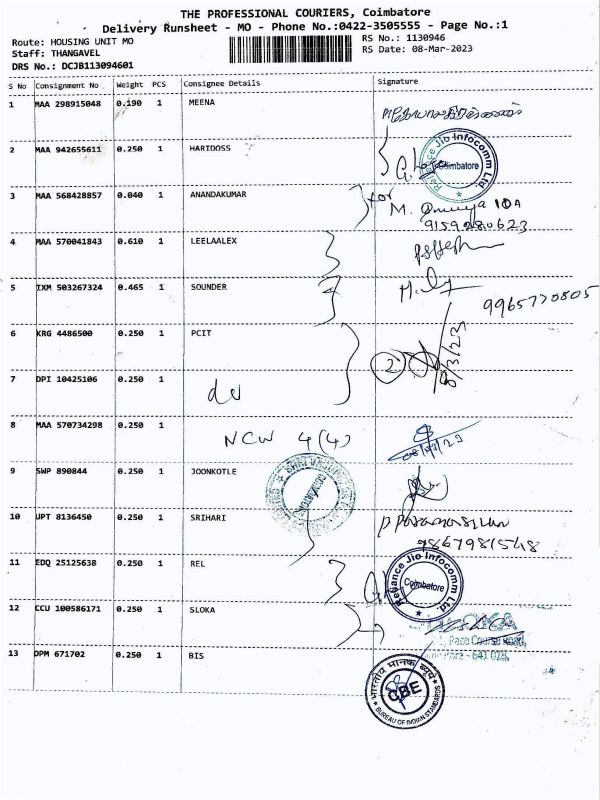 THE PROFESSIONAL COURIERS, Coimbatore
Delivery Runsheet - MO - Phone No.:0422-3505555 - Page No.:1
Route: HOUSING UNIT MO
RS No.: 1130946
Staff: THANGAVEL
RS Date: 08-Mar-2023
DRS No.: DCJB113094601
S No Consignment No Weight PCS Consignee Details Signature
1 MAA 298915048 0.190 1 MEENA
2 MAA 942655611 0.250 1 HARIDOSS
Reliance Jio Infocomm Ltd. Coimbatore
3 MAA 568428857 0.040 1 ANANDAKUMAR for
M.
9159280623
4 MAA 570041843 0.610 1 LEELAALEX
5 IXM 503267324 0.465 1 SOUNDER
9965770805
6 KRG 4486500 0.250 1 PCIT
2
8/3/23
7 DPI 10425106 0.250 1
8 MAA 570734298 0.250 1
NCW 4(4)
08/03/23
9 SWP 890844 0.250 1 JOONKOTLE
10 UPT 8136450 0.250 1 SRIHARI
9867981548
11 EDQ 25125638 0.250 1 REL
Reliance Jio Infocomm Ltd. Coimbatore
12 CCU 100586171 0.250 1 SLOKA
Race Course Road,
- 641 018.
13 DPM 671702 0.250 1 BIS
भारतीय मानक ब्यूरो
CBE
BUREAU OF INDIAN STANDARDS